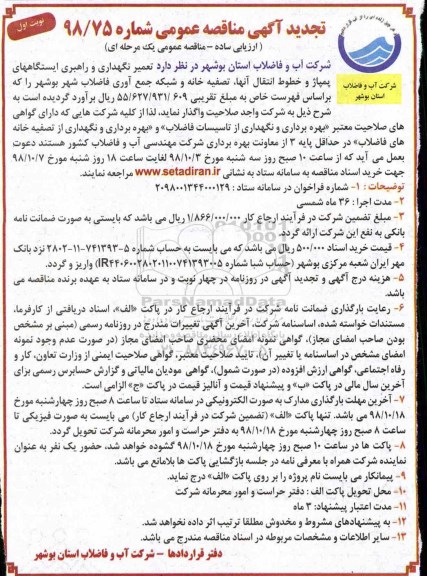 نوبت اول
تجدید آگهی مناقصه عمومی شماره ۹۸/۷۵
( ارزیابی ساده – مناقصه عمومی یک مرحله ای )
شرکت آب و فاضلاب استان بوشهر
شرکت آب و فاضلاب استان بوشهر در نظر دارد تعمیر نگهداری و راهبری ایستگاههای
پمپاژ و خطوط انتقال آنها، تصفیه خانه و شبکه جمع آوری فاضلاب شهر بوشهر را که
براساس فهرست خاص به مبلغ تقریبی ۵۵/۶۲۷/۹۳۱/۶۰۹ ریال برآورد گردیده است به
شرح ذیل به شرکت واجد صلاحیت واگذار نماید، لذا از کلیه شرکت هایی که دارای گواهی
های صلاحیت معتبر «بهره برداری و نگهداری از تاسیسات فاضلاب» و «بهره برداری و نگهداری از تصفیه خانه
های فاضلاب» در حداقل پایه ۳ از معاونت بهره برداری شرکت مهندسی آب و فاضلاب کشور هستند دعوت
بعمل می آید که از ساعت ۱۰ صبح روز سه شنبه مورخ ۹۸/۱۰/۳ لغایت ساعت ۱۸ روز شنبه مورخ ۹۸/۱۰/۷
جهت خرید اسناد مناقصه به سامانه ستاد به نشانی www.setadiran.ir مراجعه نمایند.
توضیحات : ۱- شماره فراخوان در سامانه ستاد : ۲۰۹۸۰۰۱۳۴۴۰۰۰۱۲۹
۲- مدت اجرا : ۳۶ ماه شمسی
۳- مبلغ تضمین شرکت در فرآیند ارجاع کار ۱/۸۶۶/۰۰۰/۰۰۰ ریال می باشد که بایستی به صورت ضمانت نامه
بانکی به نفع این شرکت ارائه گردد.
۴- قیمت خرید اسناد ۵۰۰/۰۰۰ ریال می باشد که می بایست به حساب شماره ۵-۷۴۱۳۹۳-۱۱-۲۸۰۲ نزد بانک
مهر ایران شعبه مرکزی بوشهر (حساب شبا شماره IR۴۴۰۶۰۰۲۸۰۲۰۱۱۰۰۷۴۱۳۹۳۰۰۵) واریز و گردد.
۵- هزینه درج آگهی و تجدید آگهی در روزنامه در چهار نوبت و در سامانه ستاد به عهده برنده مناقصه می
باشد.
۶- رعایت بارگذاری ضمانت نامه شرکت در فرآیند ارجاع کار در پاکت «الف»، اسناد دریافتی از کارفرما،
مستندات خواسته شده، اساسنامه شرکت، آخرین آگهی تغییرات مندرج در روزنامه رسمی (مبنی بر مشخص
بودن صاحب امضای مجاز)، گواهی نمونه امضای محضری صاحب امضای مجاز (در صورت عدم وجود نمونه
امضای مشخص در اساسنامه یا تغییر آن)، تایید صلاحیت معتبر، گواهی صلاحیت ایمنی از وزارت تعاون، کار و
رفاه اجتماعی، گواهی ارزش افزوده (در صورت شمول)، گواهی مودیان مالیاتی و گزارش حسابرس رسمی برای
آخرین سال مالی در پاکت «ب» و پیشنهاد قیمت و آنالیز قیمت در پاکت «ج» الزامی است.
۷- آخرین مهلت بارگذاری مدارک به صورت الکترونیکی در سامانه ستاد تا ساعت ۸ صبح روز چهارشنبه مورخ
۹۸/۱۰/۱۸ می باشد. تنها پاکت «الف» (تضمین شرکت در فرآیند ارجاع کار) می بایست به صورت فیزیکی تا
ساعت ۸ صبح روز چهارشنبه مورخ ۹۸/۱۰/۱۸ به دفتر حراست و امور محرمانه شرکت تحویل گردد.
۸- پاکت ها در ساعت ۱۰ صبح روز چهارشنبه مورخ ۹۸/۱۰/۱۸ گشوده خواهد شد، حضور یک نفر به عنوان
نماینده شرکت همراه با معرفی نامه در جلسه بازگشایی پاکت ها بلامانع می باشد.
۹- پیمانکار می بایست نام پروژه را بر روی پاکت «الف» درج نماید.
۱۰- محل تحویل پاکت الف : دفتر حراست و امور محرمانه شرکت
۱۱- مدت اعتبار پیشنهاد: ۳ ماه
۱۲- به پیشنهادهای مشروط و مخدوش مطلقا ترتیب اثر داده نخواهد شد.
۱۳- سایر اطلاعات و مشخصات مربوطه در اسناد مناقصه مندرج می باشد.
دفتر قراردادها – شرکت آب و فاضلاب استان بوشهر